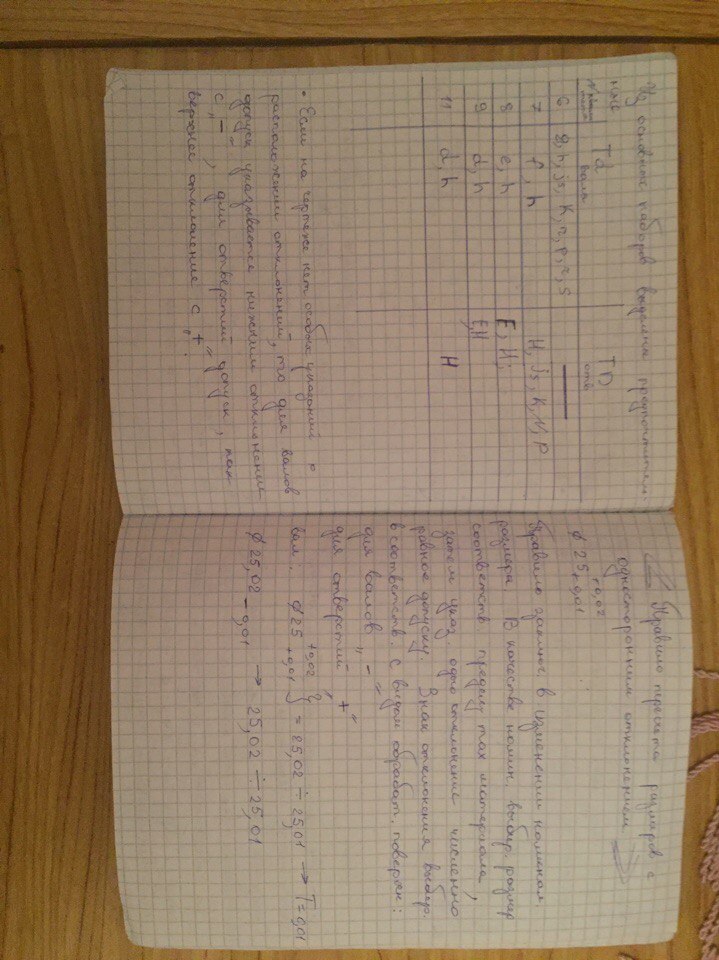 Из основных наборов выделены предпочтитель-
ные
Td вала
TD отв
6 g, h, js, k, n, p, r, s —
7 f, h H, js, K, N, P
8 e, h F, H;
9 d, h E, H
11 d, h H
• Если на чертеже нет особых указаний о
расположении отклонений, то для валов
допуск указывается нижним отклонением
с „−“, для отверстий допуск, как
верхнее отклонение с „+“.
Правило пересчета размеров с
односторонним отклонением
∅ 25 +0,02 +0,01
Правило заключ. в изменении номинал.
размера. В качестве номин. выбир. размер
соответств. пределу max материала,
затем указ. одно отклонение численно
равное допуску. Знак отклонения выбир.
в соответств. с видом обрабат. поверхн:
для валов „−“
для отверстий „+“
вал: ∅25 +0,02 +0,01 } = 25,02 ÷ 25,01 → T=0,01
∅ 25,02 −0,01 → 25,02 ÷ 25,01